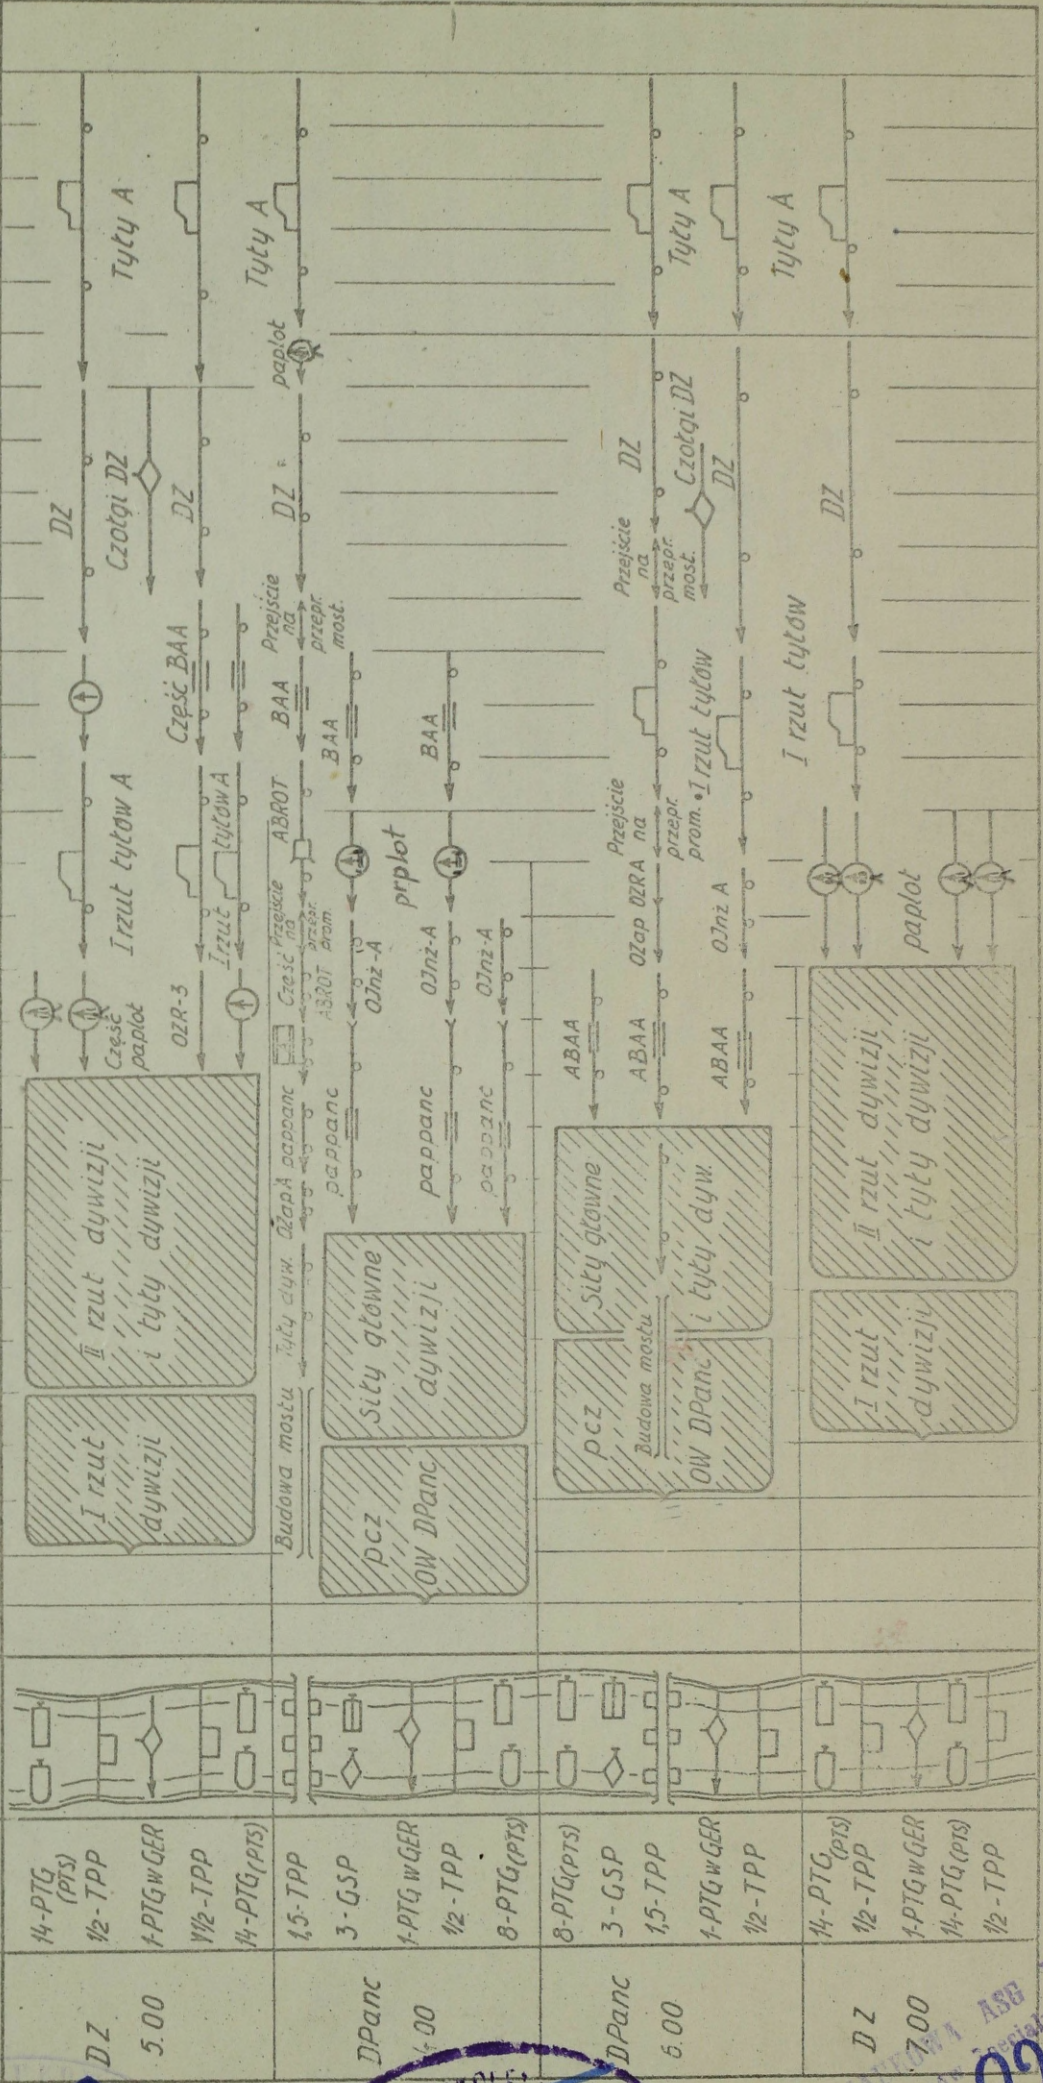 DZ
5.00
14-PTG
(PTS)
1/2-TPP
1-PTGwGER
1/2-TPP
14-PTG(PTS)
I rzut
dywizji
II rzut dywizji
i tyły dywizji
Część
paplot
OZR-3
I rzut tyłów A
I rzut tyłów A
Część BAA
DZ
Czołgi DZ
DZ
Tyły A
DPanc
1,5-TPP
3-GSP
1-PTGwGER
1/2-TPP
8-PTG(PTS)
Budowa mostu
Tyły dyw.
OZap A
pappanc
Część
ABROT
Przejście
na
przepr.
prom.
ABROT
BAA
Przejście
na
przepr.
most.
DZ
paplot
Tyły A
pcz
OW DPanc
Siły główne
dywizji
pappanc
pappanc
pappanc
OJnż-A
OJnż-A
OJnż-A
prplot
BAA
BAA
DPanc
6.00
8-PTG(PTS)
3-GSP
1,5-TPP
1-PTGwGER
1/2-TPP
pcz
Budowa mostu
OW DPanc
Siły główne
i tyły dyw.
ABAA
ABAA
ABAA
OZap
OZRA
OJnż A
Przejście
na
przepr.
prom.
I rzut tyłów
Przejście
na
przepr.
most.
DZ
Czołgi DZ
DZ
Tyły A
DZ
7.00
14-PTG
(PTS)
1/2-TPP
1-PTGwGER
14-PTG(PTS)
1/2-TPP
I rzut
dywizji
II rzut dywizji
i tyły dywizji
paplot
I rzut tyłów
DZ
Tyły A
ASG